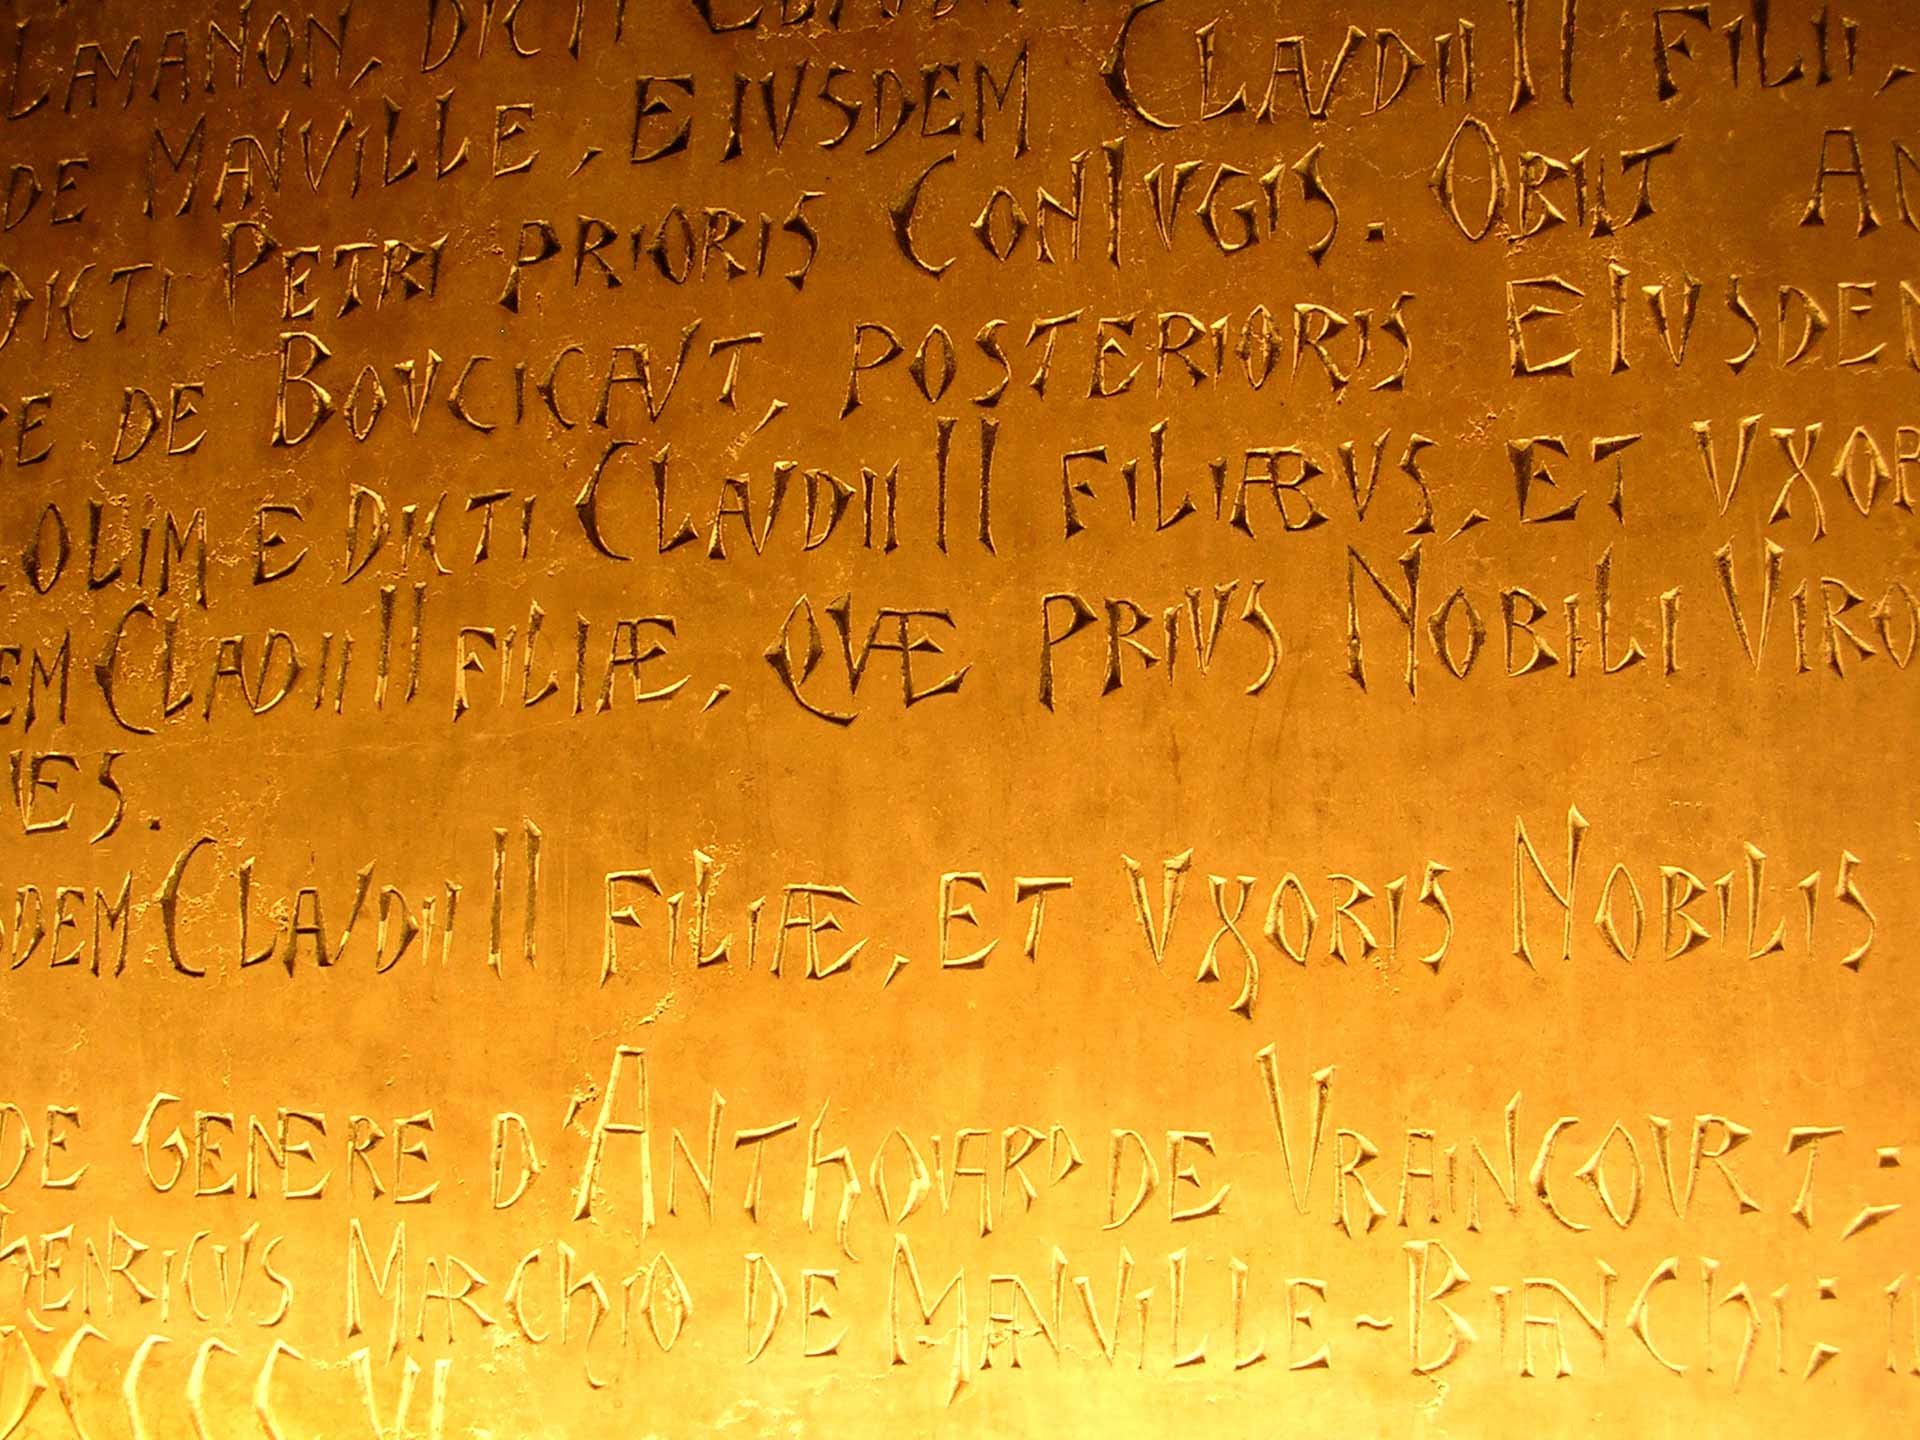 LAMANON, DICTI
DE MANVILLE, EJUSDEM CLAUDII II FILII,
DICTI PETRI PRIORIS CONJVGIS. OBIIT
DE BOVCICAVT, POSTERIORIS EJUSDEM
OLIM E DICTI CLAVDII II FILIÆBVS, ET VXOR
EM CLADII II FILIÆ, QVÆ PRIVS NOBILI VIRO
VES.
DEM CLAVDII II FILIÆ, ET VXORIS NOBILIS
DE GENERE D'ANTHOIARD DE VRAINCOVRT;
HENRICVS MARCHIO DE MANVILLE-BIANCHI;
XCCCC VI